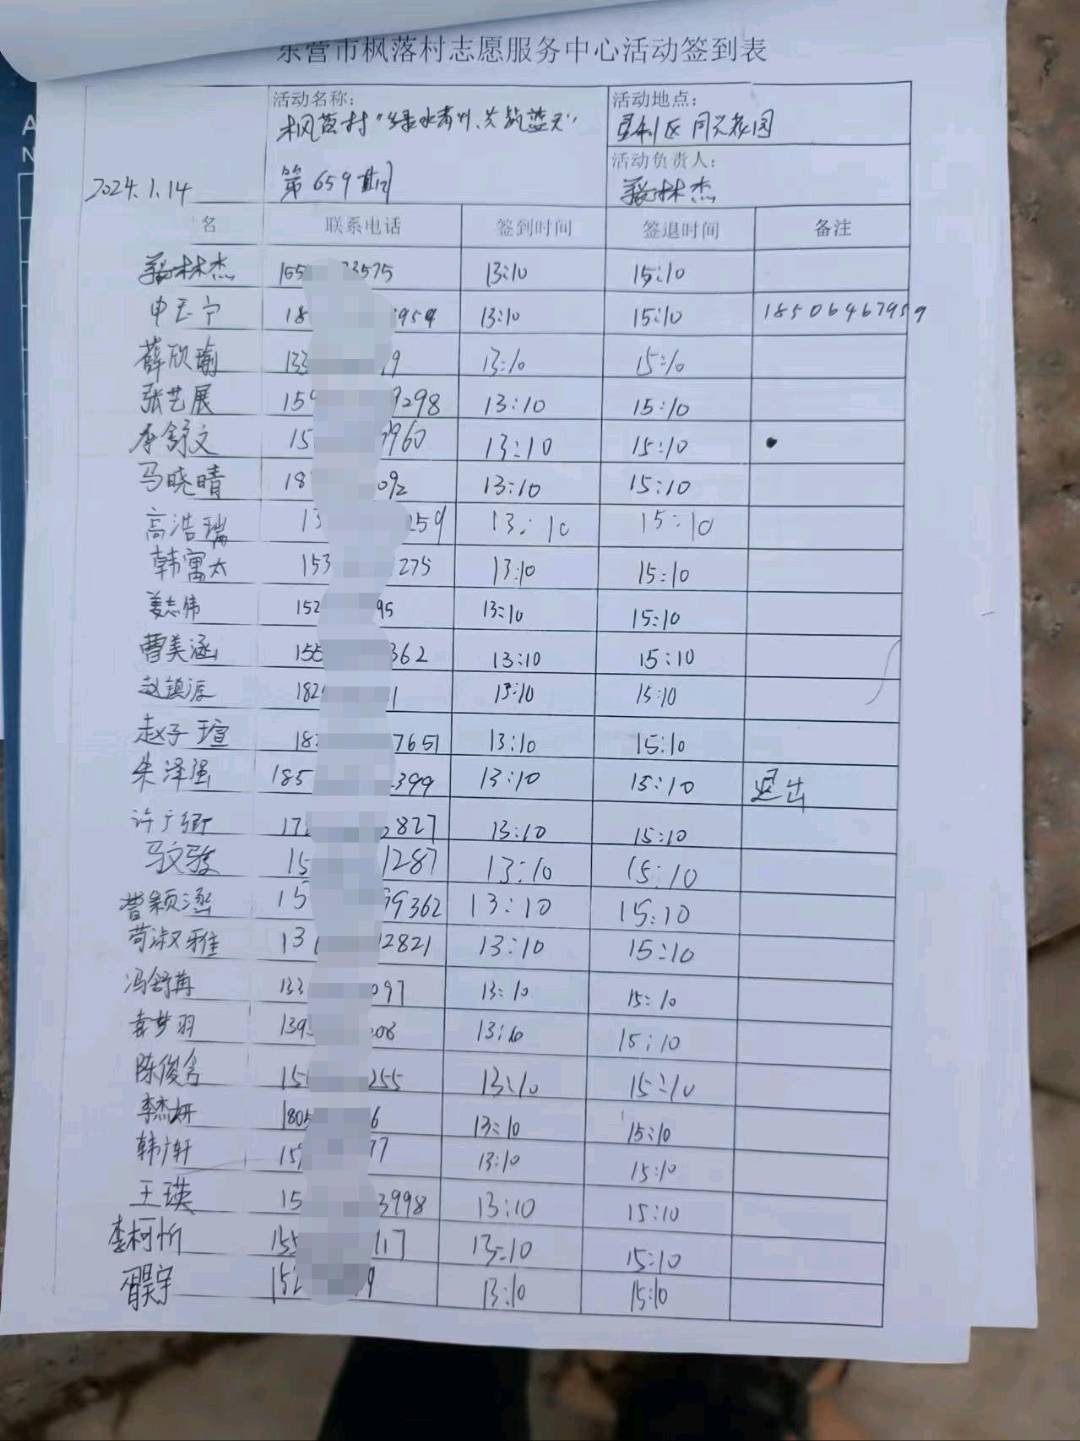 东营市枫落村志愿服务中心活动签到表
活动名称: 活动地点:
枫落村"绿水青山、共筑蓝天" 垦利区同兴花园
活动负责人:
2024.1.14 第659期 林杰
名 联系电话 签到时间 签退时间 备注
林杰 155 3575 13:10 15:10
申玉宁 18 959 13:10 15:10 18506467959
薛欣瑜 133 9 13:10 15:10
张艺展 159 9298 13:10 15:10
李舒文 15 9960 13:10 15:10
马晓晴 18 092 13:10 15:10
高浩瑞 13 259 13:10 15:10
韩寓太 153 275 13:10 15:10
姜志伟 152 95 13:10 15:10
曹美涵 155 362 13:10 15:10
赵镇派 182 1 13:10 15:10
赵子瑄 18 7651 13:10 15:10
朱泽强 185 399 13:10 15:10 退出
许广 17 2827 13:10 15:10
马文骏 15 1287 13:10 15:10
曹颖 15 99362 13:10 15:10
苟淑雅 13 12821 13:10 15:10
冯舒苒 133 097 13:10 15:10
李梦羽 139 208 13:10 15:10
陈俊含 15 255 13:10 15:10
李杰妍 1805 6 13:10 15:10
韩轩 15 77 13:10 15:10
王瑛 15 3998 13:10 15:10
李柯忻 155 117 13:10 15:10
胥昊宇 152 9 13:10 15:10